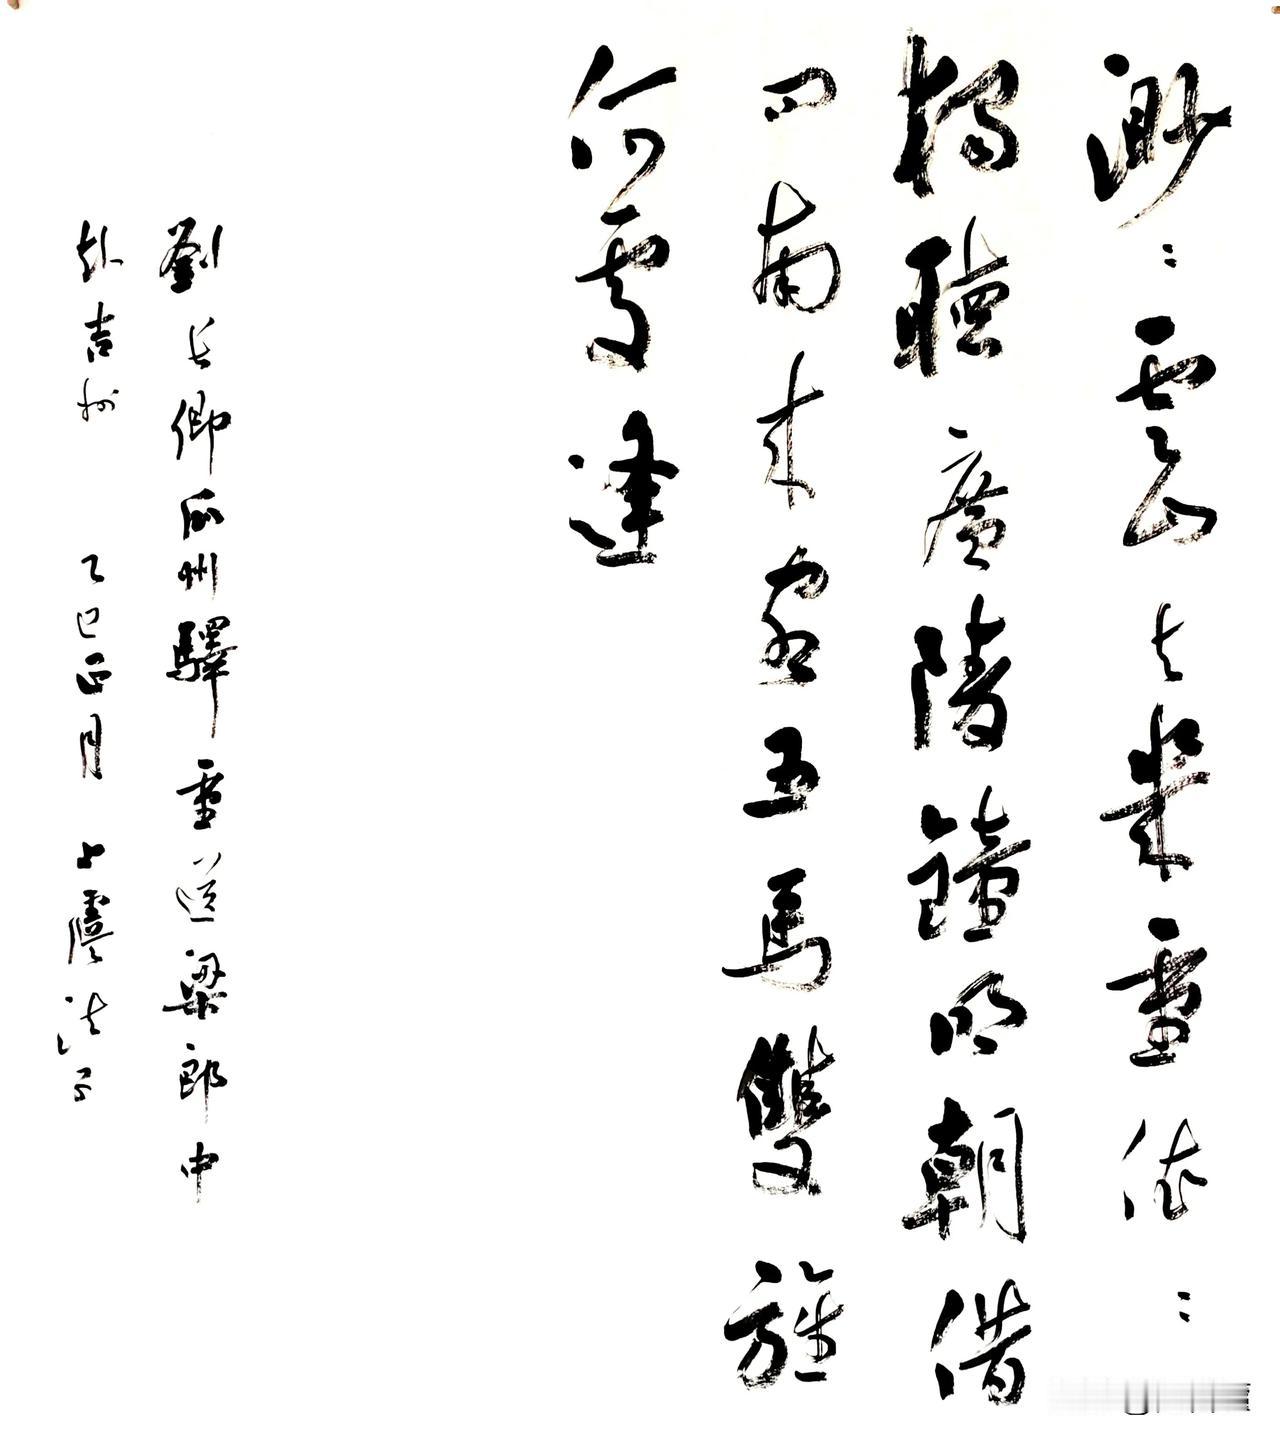 渺〻雲山去幾重依〻
獨聽廣陵鐘明朝借
問南來客五馬雙旌
何處逢
劉長卿瓜州驛重送梁郎中
赴吉州 乙巳正月 上虞